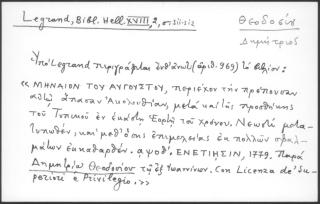 Legrand, Bibl. Hell. XVIII, 2, σ. 311-312
Θεοδοσίου
Δημήτριος
Ὑπὸ Legrand περιγράφεται ὑπ' ἀριθ. 969) τὸ βιβλίον:
« ΜΗΝΑΙΟΝ ΤΟΥ ΑΥΓΟΥΣΤΟΥ, περιέχον τὴν πρέπουσαν
αὐτῷ ἅπασαν Ἀκολουθίαν, μετὰ καὶ τῆς προσθήκης
τοῦ Τυπικοῦ ἐν ἑκάστῃ Ἑορτῇ τοῦ χρόνου. Νεωστὶ μετα-
τυπωθέν, καὶ μεθ' ὅσης ἐπιμελείας ἐκ πολλῶν σφαλ-
μάτων ἐκκαθαρθέν. αψοθ'. ΕΝΕΤΙΗΣΙΝ, 1779. Παρὰ
Δημητρίῳ Θεοδοσίου τῷ ἐξ Ἰωαννίνων. Con Licenza de' Su-
periori e Privilegio. »